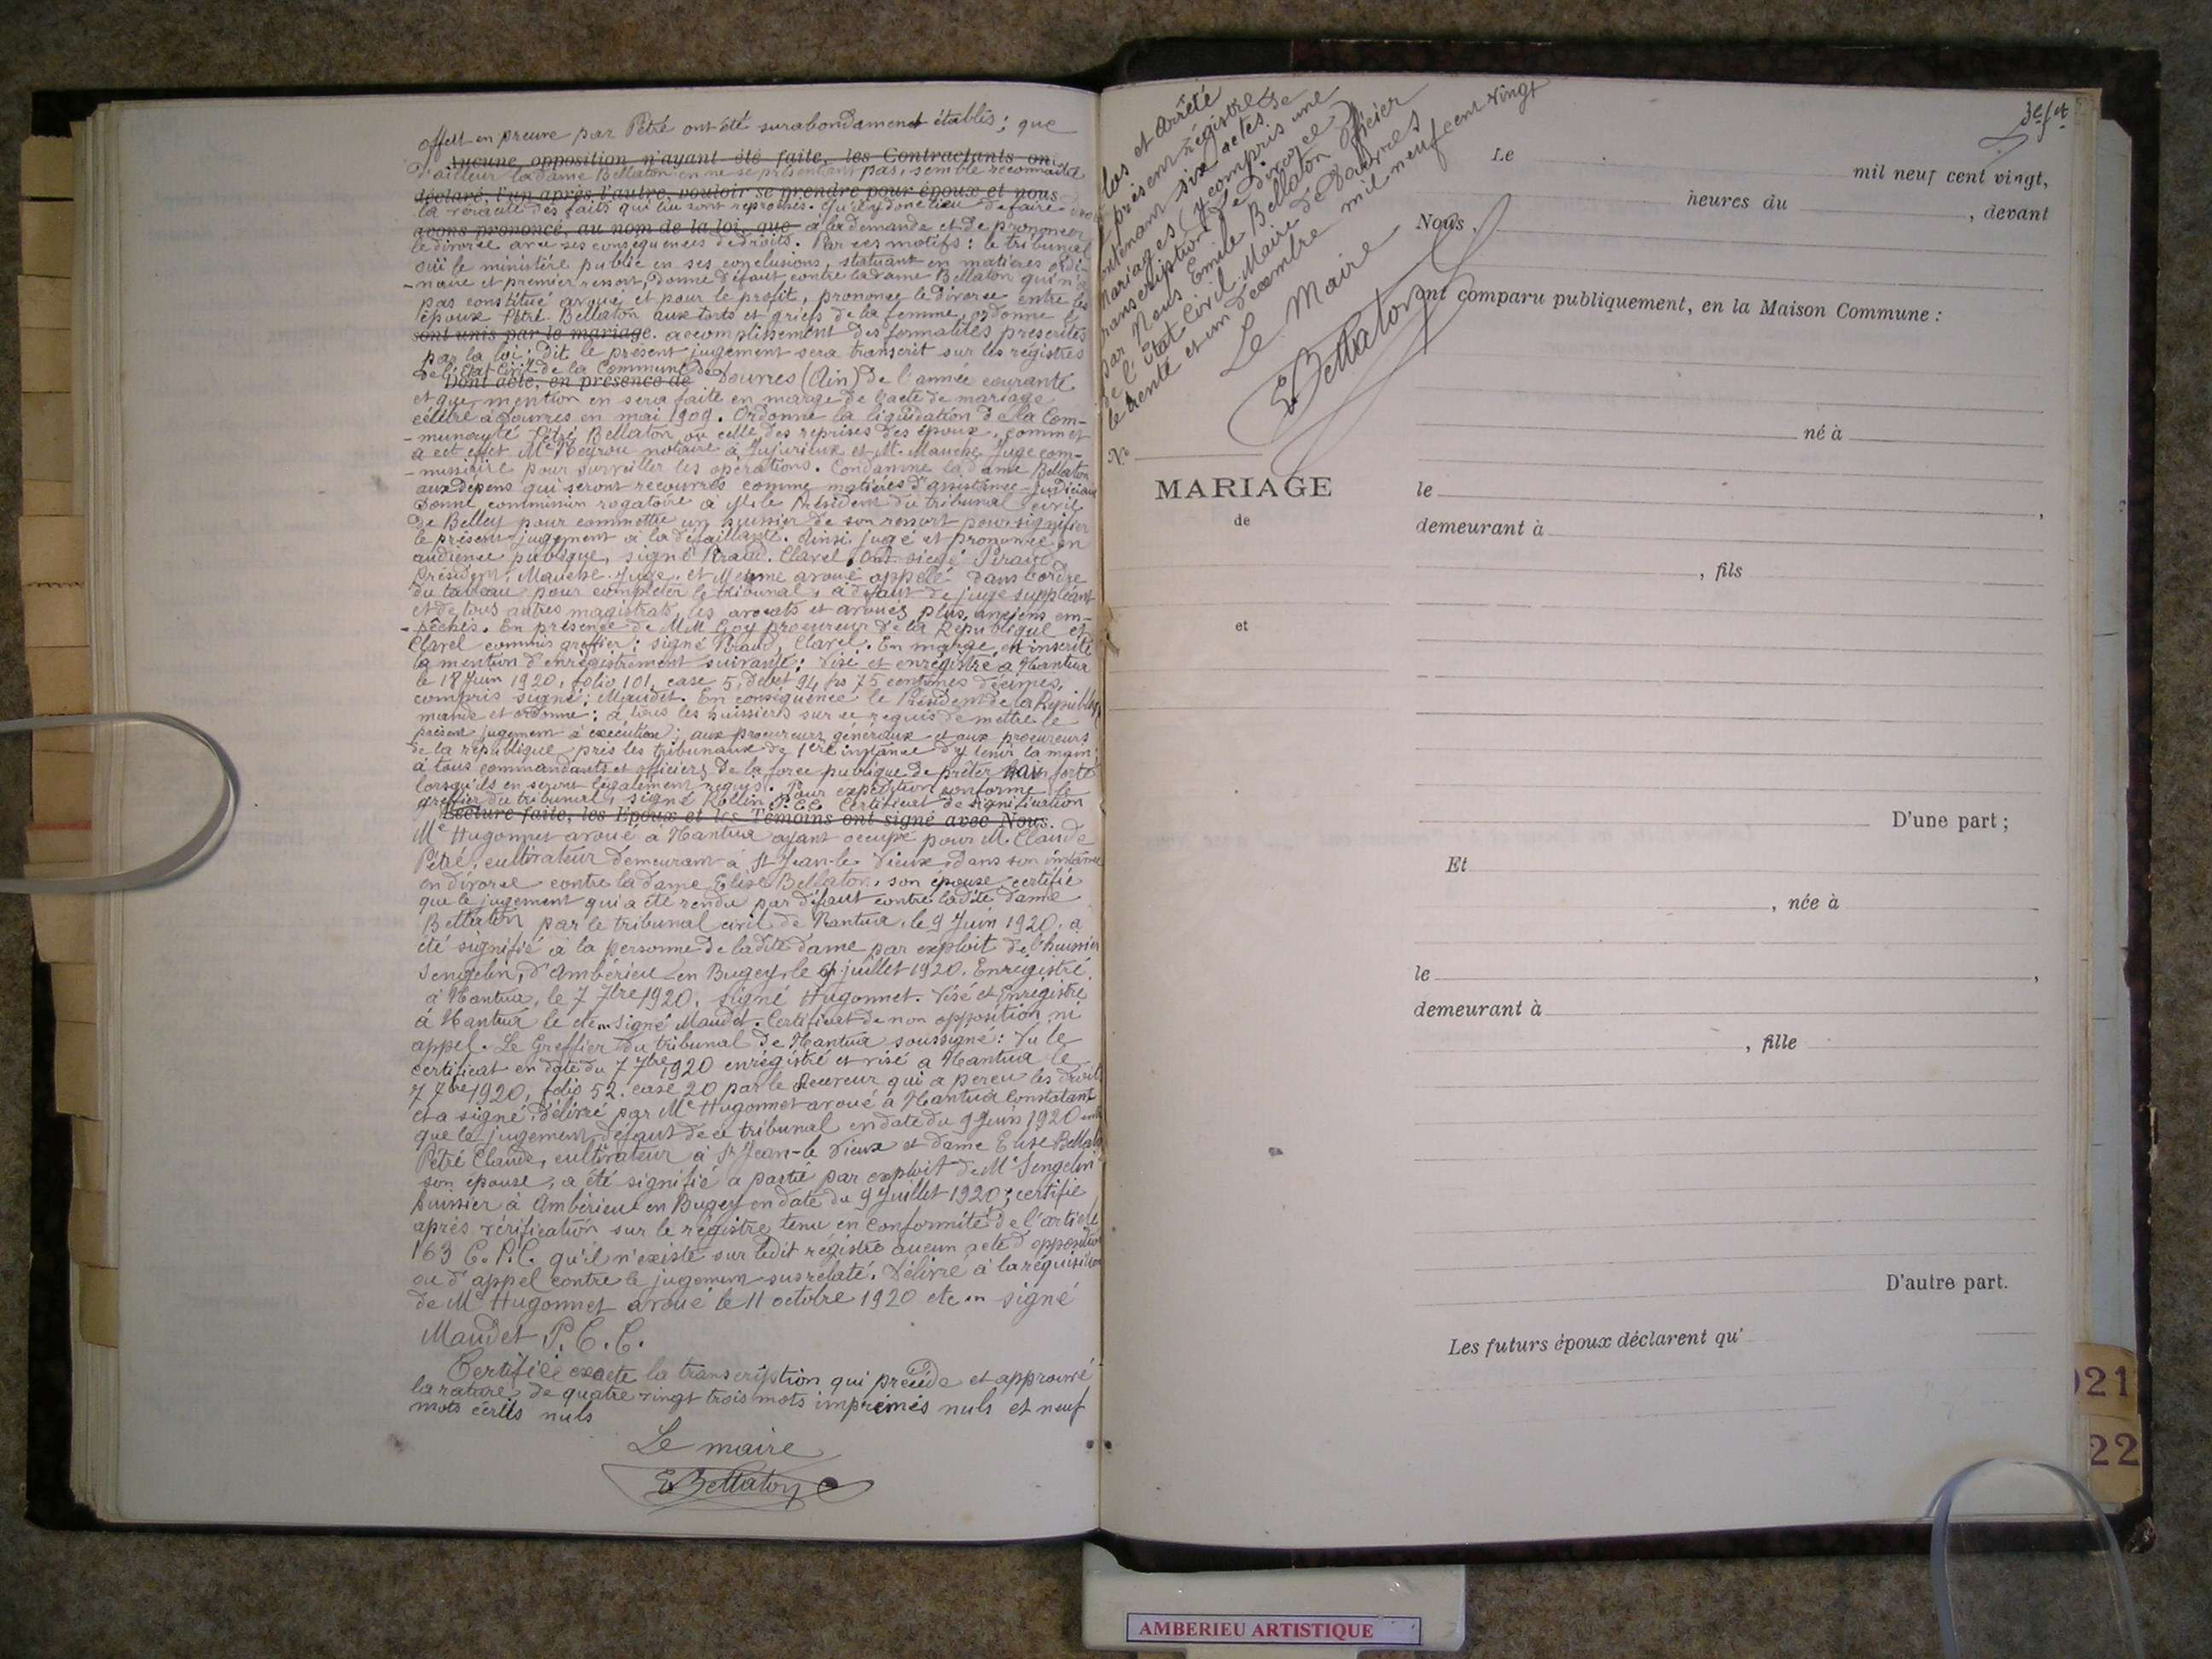 offert en preuve par Pétré ont été surabondament établis ; que
Aucune opposition n'ayant été faite, les Contractants ont
d'ailleur la dame Bellaton en ne se présentant pas, semble reconnaître
déclaré, l'un après l'autre, vouloir se prendre pour époux et nous
la réalité des faits qui lui sont reprochés. Qu'il y donc lieu de faire
avons prononcé, au nom de la loi, que à la demande et de prononcer
le divorce avec ses conséquences de droits. Par ces motifs : le tribunal
oui le ministère public en ses conclusions, statuant en matières ordi-
-naire et premier ressort, donne défaut contre la dame Bellaton qui n'a
pas constitué avoué et pour le profit, prononce le divorce entre les
époux Pétré-Bellaton aux torts et griefs de la femme, ordonne le
sont unis par le mariage. accomplissement des formalités prescrites
par la loi ; Dit le présent jugement sera transcrit sur les registres
de l'Etat Civil de la Commune de
Dont acte, en présence de Douvres (Ain) de l'année courante
et que mention en sera faite en marge de l'acte de mariage
célébré à Douvres en mai 1909. Ordonne la liquidation de la Com-
-munauté Pétré Bellaton ou celle des reprises des époux, commet
à cet effet Me Peyrou notaire à Jujurieux et M. Mauche Juge com-
-missaire pour surveiller les opérations. Condamne la dame Bellaton
aux dépens qui seront recouvrés comme matières d'assistance judiciaire
Donne commission rogatoire à M. le Président du tribunal civil
de Belley pour commettre un huissier de son ressort pour signifier
le présent jugement à la défaillante. Ainsi jugé et prononcé en
audience publique, signé Piraud. Clavel. Ont siégé Piraud
Président, Mauche Juge, et avoué appelé dans l'ordre
du tableau pour compléter le tribunal, à défaut de juge suppléant
et de tous autres magistrats, les avocats et avoués plus anciens em-
-pêchés. En présence de MM Goy procureur de la République et
Clavel commis greffier ; signé Piraud, Clavel. En marge est inscrite
la mention d'enregistrement suivante : Visé et enregistré à Nantua
le 18 Juin 1920, folio 101, case 5, débet 94 frs 75 centimes décimes,
compris signé : Maudet. En conséquence le Président de la République
mande et ordonne : à tous les huissiers sur ce requis de mettre le
présent jugement à exécution ; aux procureurs généraux et aux procureurs
de la république près les tribunaux de 1ère instance d'y tenir la main ;
à tous commandants et officiers de la force publique de prêter main forte
lorsqu'ils en seront légalement requis. Pour expédition conforme le
greffier du tribunal, signé Rollin. P.C.C. Certificat de signification
Lecture faite, les Epoux et les Témoins ont signé avec Nous.
Me Hugonnet avoué à Nantua ayant occupé pour M. Claude
Pétré, cultivateur demeurant à St Jean-le-Vieux, dans son instance
en divorce contre la dame Elise Bellaton, son épouse, certifie
que le jugement qui a été rendu par défaut contre ladite dame
Bellaton par le tribunal civil de Nantua, le 9 Juin 1920, a
été signifié à la personne de ladite dame par exploit de l'huissier
Sengelin, d'Ambérieu-en Bugey, le 9 juillet 1920. Enregistré
à Nantua, le 7 7bre 1920. signé Hugonnet. Visé et Enregistré
à Nantua le etc... Signé Maudet. Certificat de non opposition ni
appel. Le Greffier du tribunal de Nantua soussigné : Vu le
certificat en date du 7 7bre 1920 enregistré et visé à Nantua le
7 7bre 1920, folio 52. case 20 par le Receveur qui a perçu les droits
et a signé, délivré par Me Hugonnet avoué à Nantua constatant
que le jugement défaut de ce tribunal en date du 9 Juin 1920 entre
Pétré Claude, cultivateur à St Jean-le Vieux et dame Elise Bellaton
son épouse, a été signifié à partie par exploit de Me Sengelin
huissier à Ambérieu-en Bugey en date du 9 Juillet 1920 ; certifie
après vérification sur le régistre tenu en conformité de l'article
163 C. P. C. qu'il n'existe sur ledit régistre aucun acte d'opposition
ou d'appel contre le jugement susrelaté. Délivré à la réquisition
de Me Hugonnet avoué le 11 octobre 1920 etc... signé
Maudet P. C. C.
Certifiée exacte la transcription qui précède et approuvé
la rature de quatre vingt trois mots imprimés nuls et neuf
mots écrits nuls
Le maire
E Bellaton
Clos et Arrêté
le présent régistre
contenant six actes
mariages (y compris une
transcription de divorce)
par Nous Emile Bellaton Officier
de l'état Civil Maire de Douvres
le trente et un décembre mil neuf cent vingt
Le Maire
E Bellaton
No
MARIAGE
de
et
Le
mil neuf cent vingt,
heures du , devant
Nous,
ont comparu publiquement, en la Maison Commune :
né à
le ,
demeurant à
, fils
D'une part ;
Et
, née à
le ,
demeurant à
, fille
D'autre part.
Les futurs époux déclarent qu'
021
22
AMBERIEU ARTISTIQUE